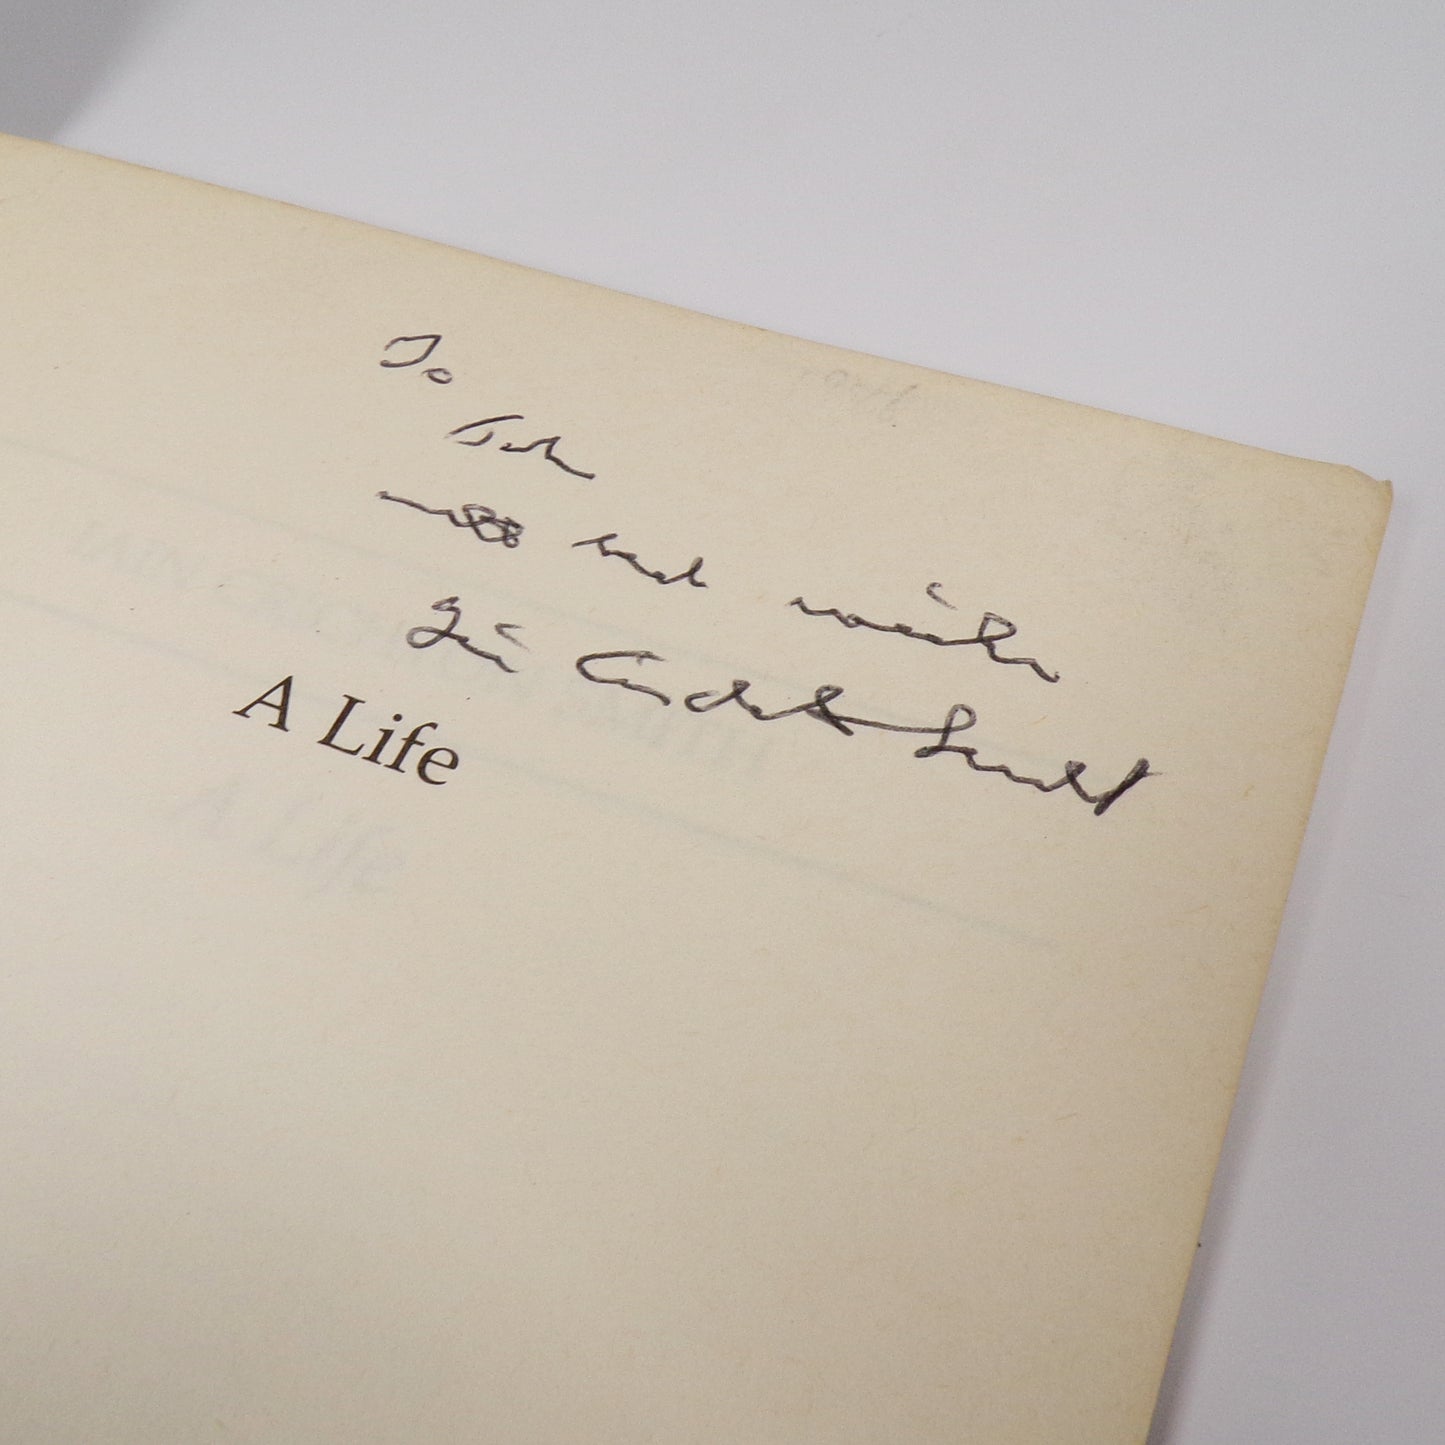 To
John
with best wishes
Iain Crichton Smith
A Life